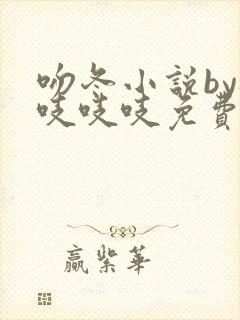 吻冬小說by
吱吱吱免費
贏紫華